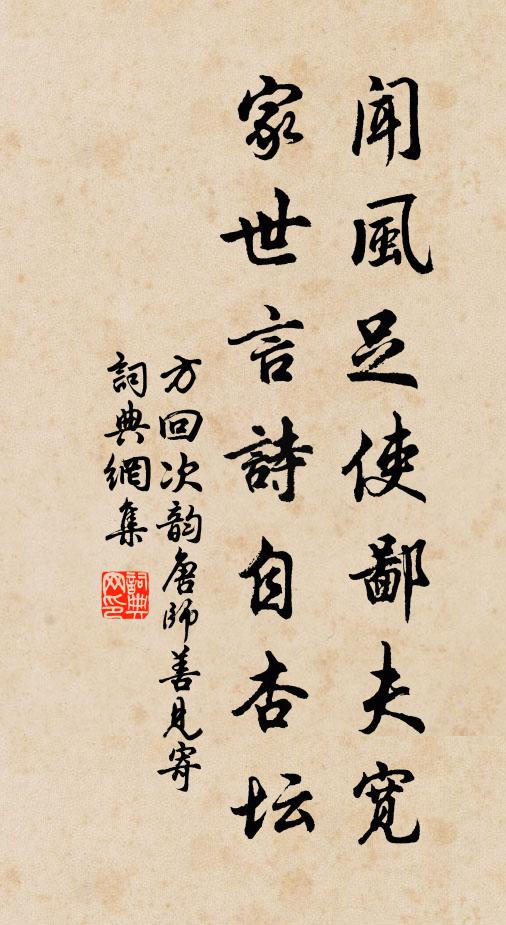 闻風足使鄙夫寬
家世言詩自杏坛
方回次韵唐師善見寄
詞典網集
詞典网印